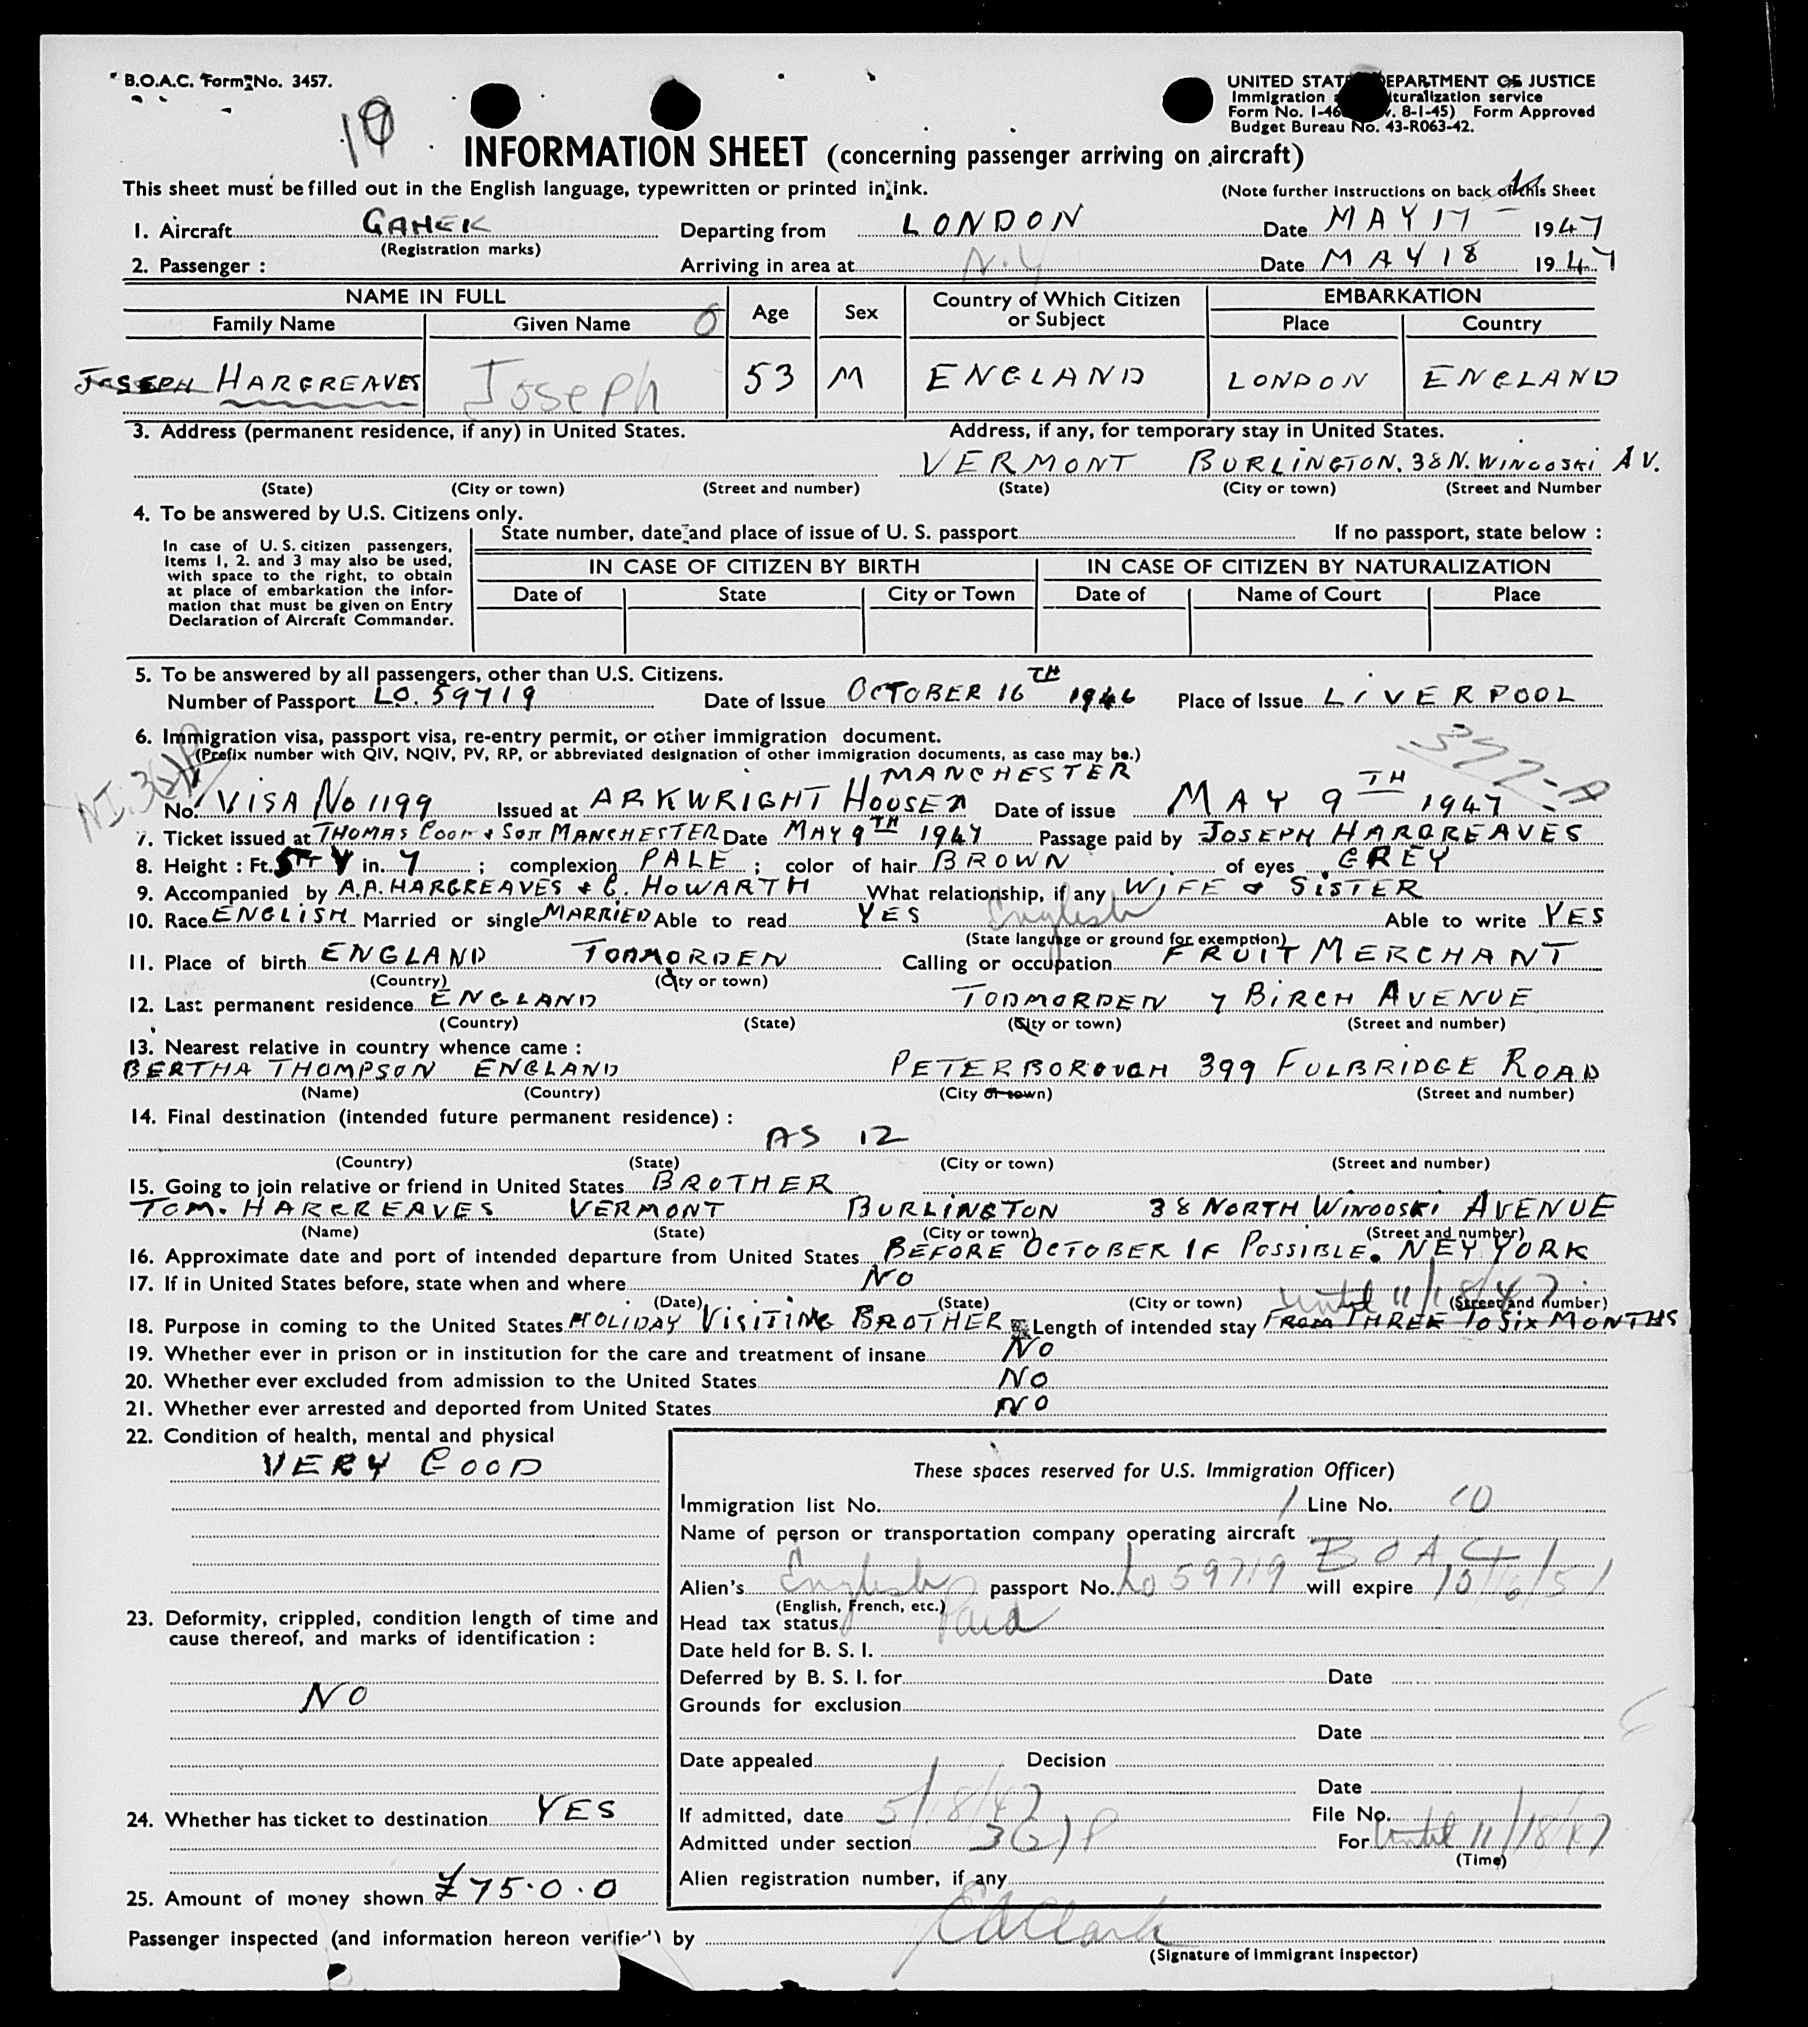 B.O.A.C. Form No. 3457.
UNITED STAT DEPARTMENT OF JUSTICE
Immigration turalization service
Form No. I-46 v. 8-1-45) Form Approved
Budget Bureau No. 43-R063-42.
19
INFORMATION SHEET (concerning passenger arriving on aircraft)
This sheet must be filled out in the English language, typewritten or printed in ink. (Note further instructions on back of this Sheet
1. Aircraft GAHEK Departing from LONDON Date MAY 17 - 1947
(Registration marks)
2. Passenger : Arriving in area at N.Y Date MAY 18 1947
NAME IN FULL Age Sex Country of Which Citizen or Subject EMBARKATION
Family Name Given Name Place Country
JOSEPH HARGREAVES Joseph 53 M ENGLAND LONDON ENGLAND
3. Address (permanent residence, if any) in United States. Address, if any, for temporary stay in United States.
VERMONT BURLINGTON. 38 N. WINOOSKI AV.
(State) (City or town) (Street and number) (State) (City or town) (Street and Number
4. To be answered by U.S. Citizens only.
State number, date and place of issue of U. S. passport If no passport, state below :
In case of U. S. citizen passengers,
items 1, 2. and 3 may also be used,
with space to the right, to obtain
at place of embarkation the infor-
mation that must be given on Entry
Declaration of Aircraft Commander.
IN CASE OF CITIZEN BY BIRTH IN CASE OF CITIZEN BY NATURALIZATION
Date of State City or Town Date of Name of Court Place
5. To be answered by all passengers, other than U.S. Citizens.
Number of Passport LO. 59719 Date of Issue OCTOBER 16TH 1946 Place of Issue LIVERPOOL
6. Immigration visa, passport visa, re-entry permit, or other immigration document.
(Prefix number with QIV, NQIV, PV, RP, or abbreviated designation of other immigration documents, as case may be.)
MANCHESTER
No. VISA No 1199 Issued at ARKWRIGHT HOUSE Date of issue MAY 9TH 1947
7. Ticket issued at THOMAS COOK & SON MANCHESTER Date MAY 9TH 1947 Passage paid by JOSEPH HARGREAVES
8. Height : Ft. 5 in. 7 ; complexion PALE ; color of hair BROWN of eyes GREY
9. Accompanied by A.A. HARGREAVES & C. HOWARTH What relationship, if any WIFE & SISTER
10. Race ENGLISH Married or single MARRIED Able to read YES English Able to write YES
(State language or ground for exemption)
11. Place of birth ENGLAND TODMORDEN Calling or occupation FRUIT MERCHANT
(Country) (City or town)
12. Last permanent residence ENGLAND TODMORDEN 7 BIRCH AVENUE
(Country) (State) (City or town) (Street and number)
13. Nearest relative in country whence came :
BERTHA THOMPSON ENGLAND PETERBOROUGH 399 FULBRIDGE ROAD
(Name) (Country) (City or town) (Street and number)
14. Final destination (intended future permanent residence) :
AS 12
(Country) (State) (City or town) (Street and number)
15. Going to join relative or friend in United States BROTHER
TOM. HARGREAVES VERMONT BURLINGTON 38 NORTH WINOOSKI AVENUE
(Name) (State) (City or town) (Street and number)
16. Approximate date and port of intended departure from United States BEFORE OCTOBER IF POSSIBLE. NEY YORK
17. If in United States before, state when and where NO
(Date) (State) (City or town) (Street and number)
until 11/18/47
18. Purpose in coming to the United States HOLIDAY VISITING BROTHER Length of intended stay FROM THREE TO SIX MONTHS
19. Whether ever in prison or in institution for the care and treatment of insane NO
20. Whether ever excluded from admission to the United States NO
21. Whether ever arrested and deported from United States NO
22. Condition of health, mental and physical
VERY GOOD
23. Deformity, crippled, condition length of time and
cause thereof, and marks of identification :
NO
24. Whether has ticket to destination YES
25. Amount of money shown £75.0.0
These spaces reserved for U.S. Immigration Officer)
Immigration list No. 1 Line No. 10
Name of person or transportation company operating aircraft
BOAC
Alien's English passport No. Lo 59719 will expire 10/16/51
(English, French, etc.)
Head tax status Paid
Date held for B. S. I.
Deferred by B. S. I. for Date
Grounds for exclusion
Date
Date appealed Decision
Date
If admitted, date 5/18/47 File No.
Admitted under section 3(2) P For Until 11/18/47
(Time)
Alien registration number, if any
Passenger inspected (and information hereon verified) by EAClark
(Signature of immigrant inspector)